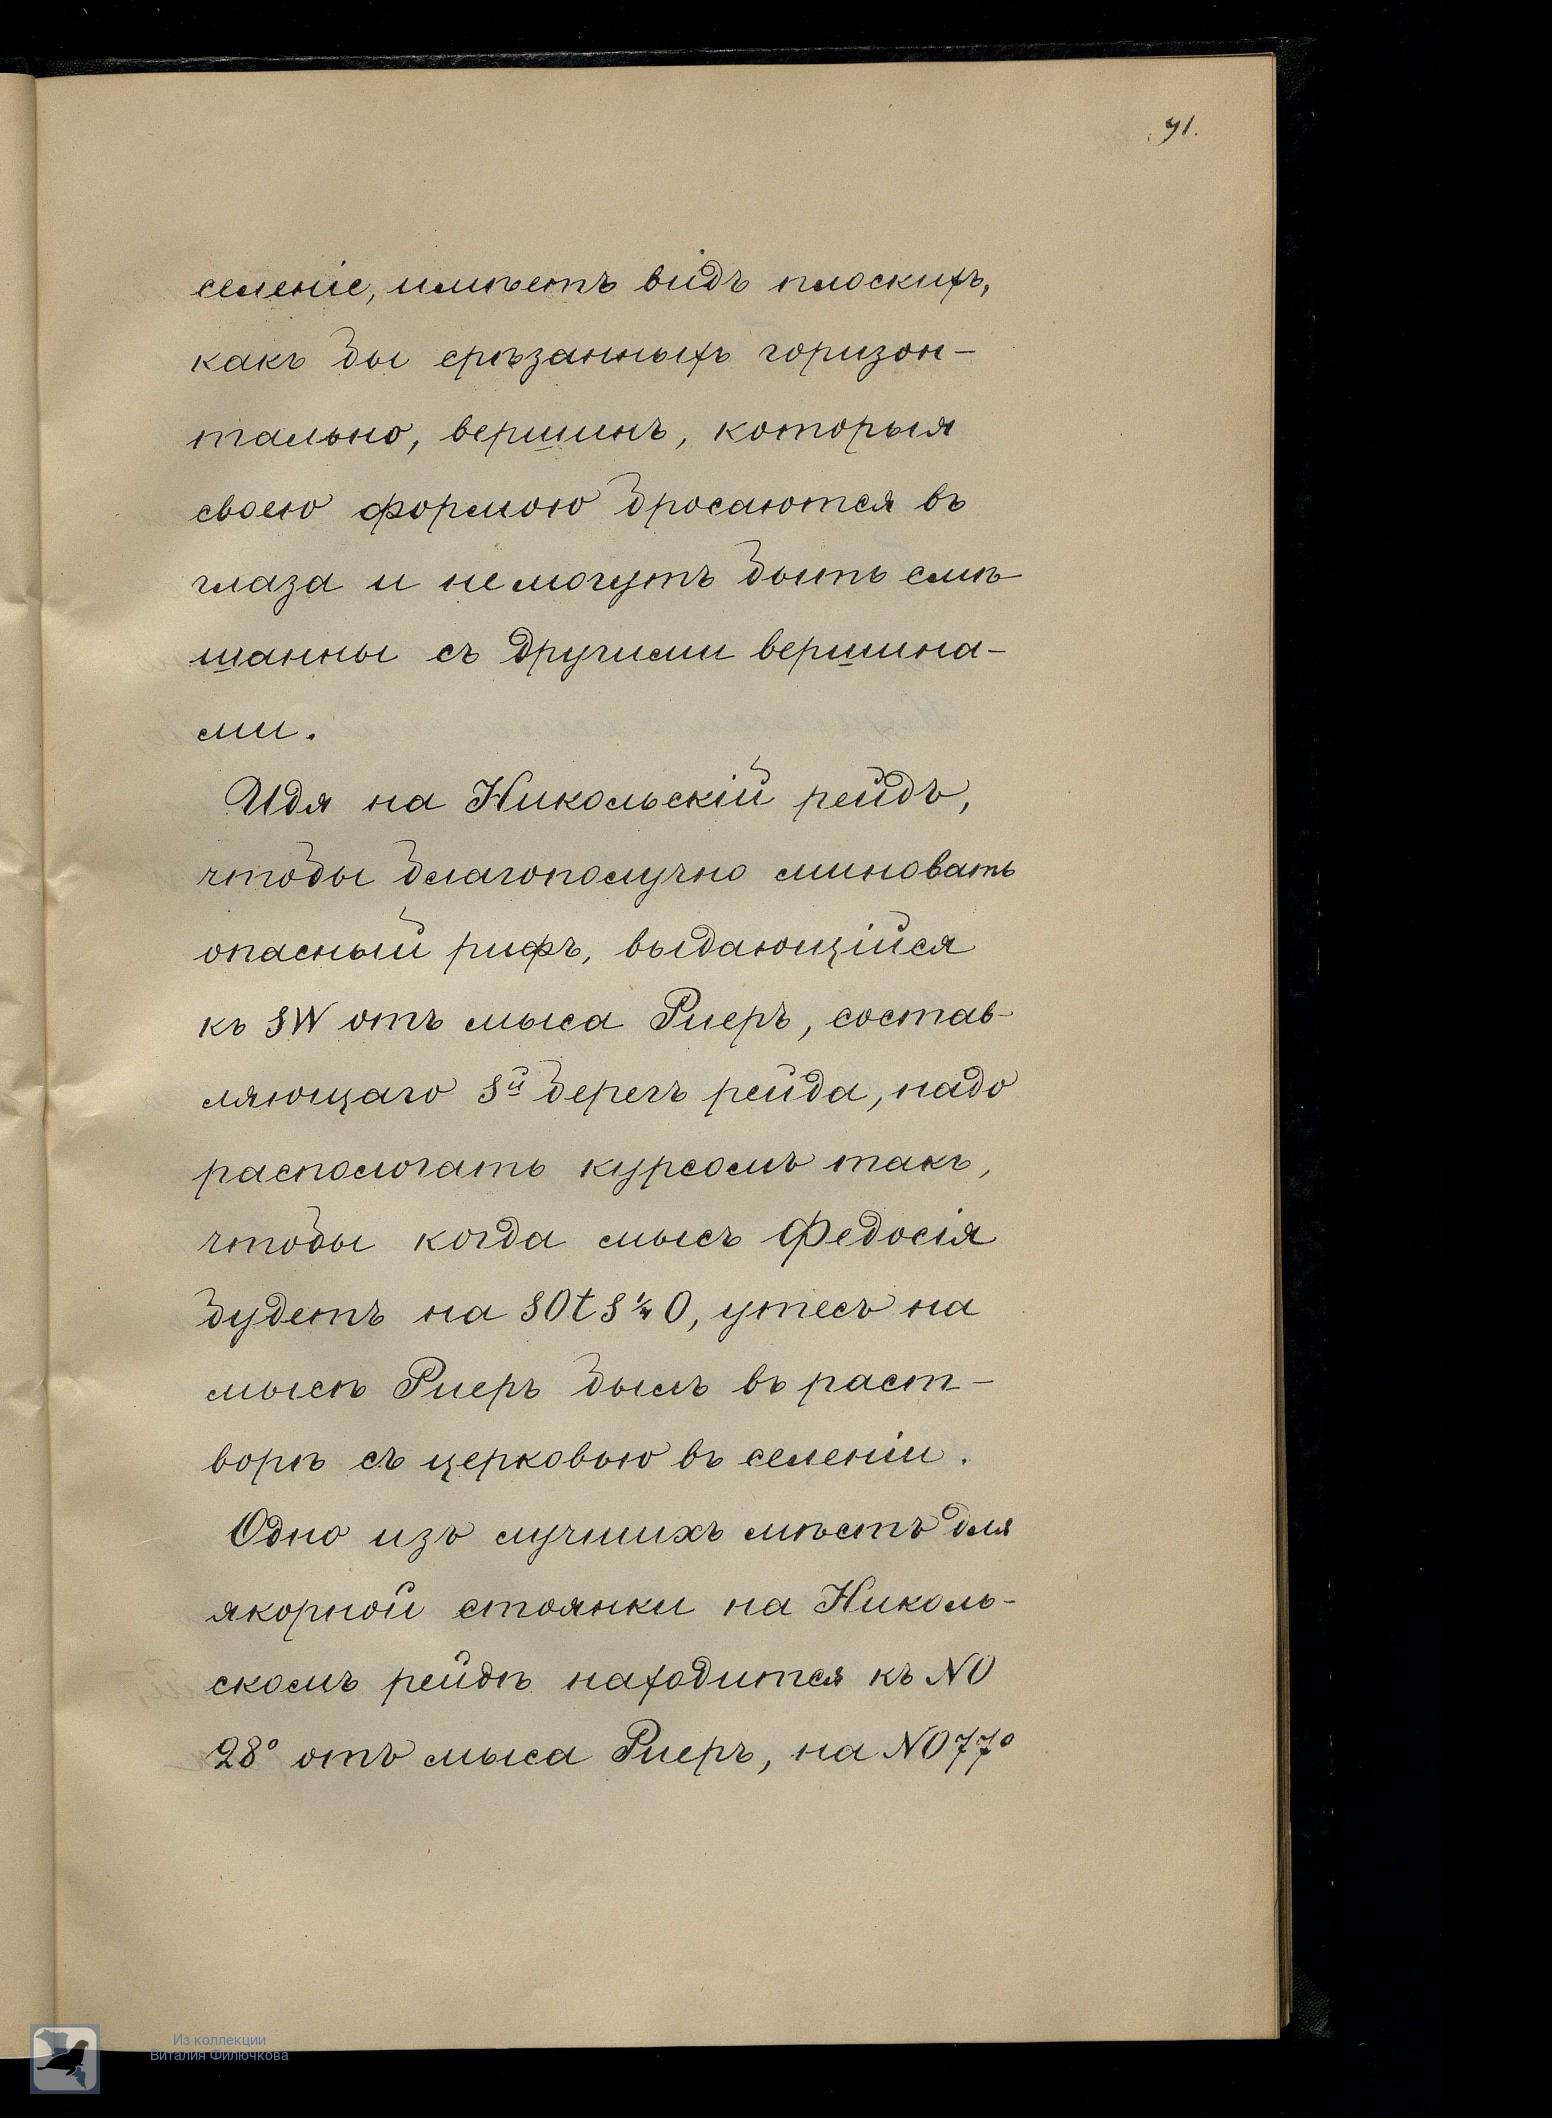 71.
селеніе, имѣетъ видъ плоскихъ,
какъ бы срѣзанныхъ горизон-
тально, вершинъ, которыя
своею формою бросаются въ
глаза и немогутъ быть смѣ-
шанны съ другими вершина-
ми.
Идя на Никольскій рейдъ,
чтобы благополучно миновать
опасный рифъ, выдающійся
къ SW отъ мыса Риеръ, состав-
ляющаго Sй берегъ рейда, надо
распологать курсомъ такъ,
чтобы когда мысъ Федосія
будетъ на SOtS¼O, утесъ на
мысѣ Риеръ былъ въ раст-
ворѣ съ церковью въ селеніи.
Одно изъ лучшихъ мѣстъ для
якорной стоянки на Николь-
скомъ рейдѣ находится къ NO
28° отъ мыса Риеръ, на NO77°
Из коллекции
Виталия Филючкова